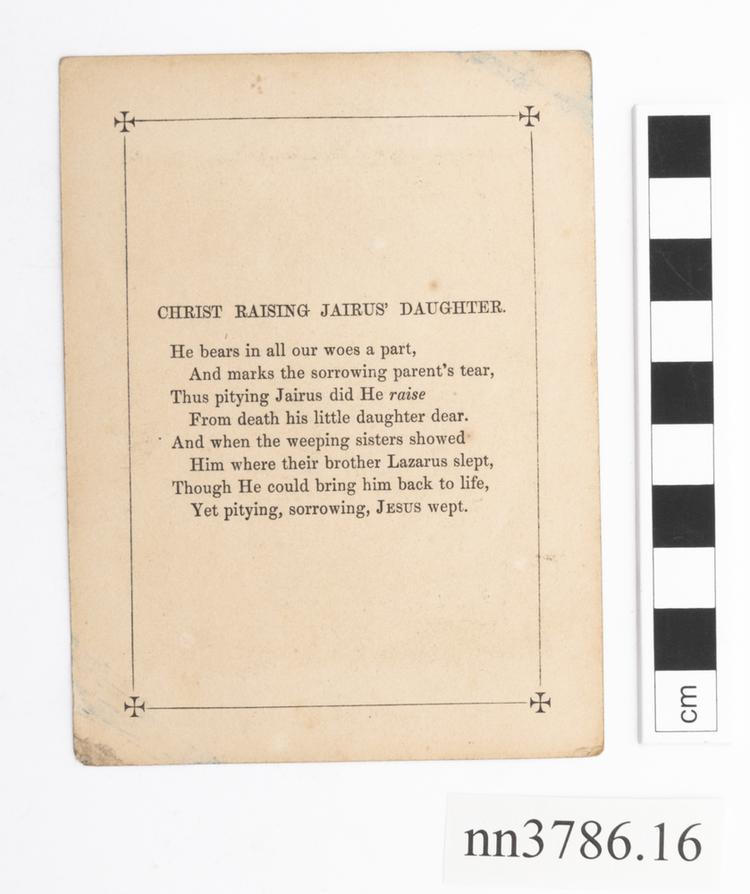 CHRIST RAISING JAIRUS' DAUGHTER.
He bears in all our woes a part,
And marks the sorrowing parent's tear,
Thus pitying Jairus did He raise
From death his little daughter dear.
And when the weeping sisters showed
Him where their brother Lazarus slept,
Though He could bring him back to life,
Yet pitying, sorrowing, JESUS wept.
cm
nn3786.16